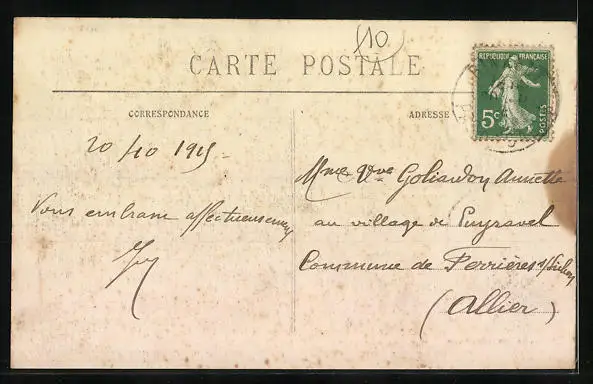 10
CARTE POSTALE
REPUBLIQUE FRANÇAISE
5c
POSTES
CORRESPONDANCE
ADRESSE
20/10 1915
Vous embrasse affectueusement
Mme Vve Goliardon Annette
au village de Puyravel
Commune de Ferrières s/Sichon
(Allier)